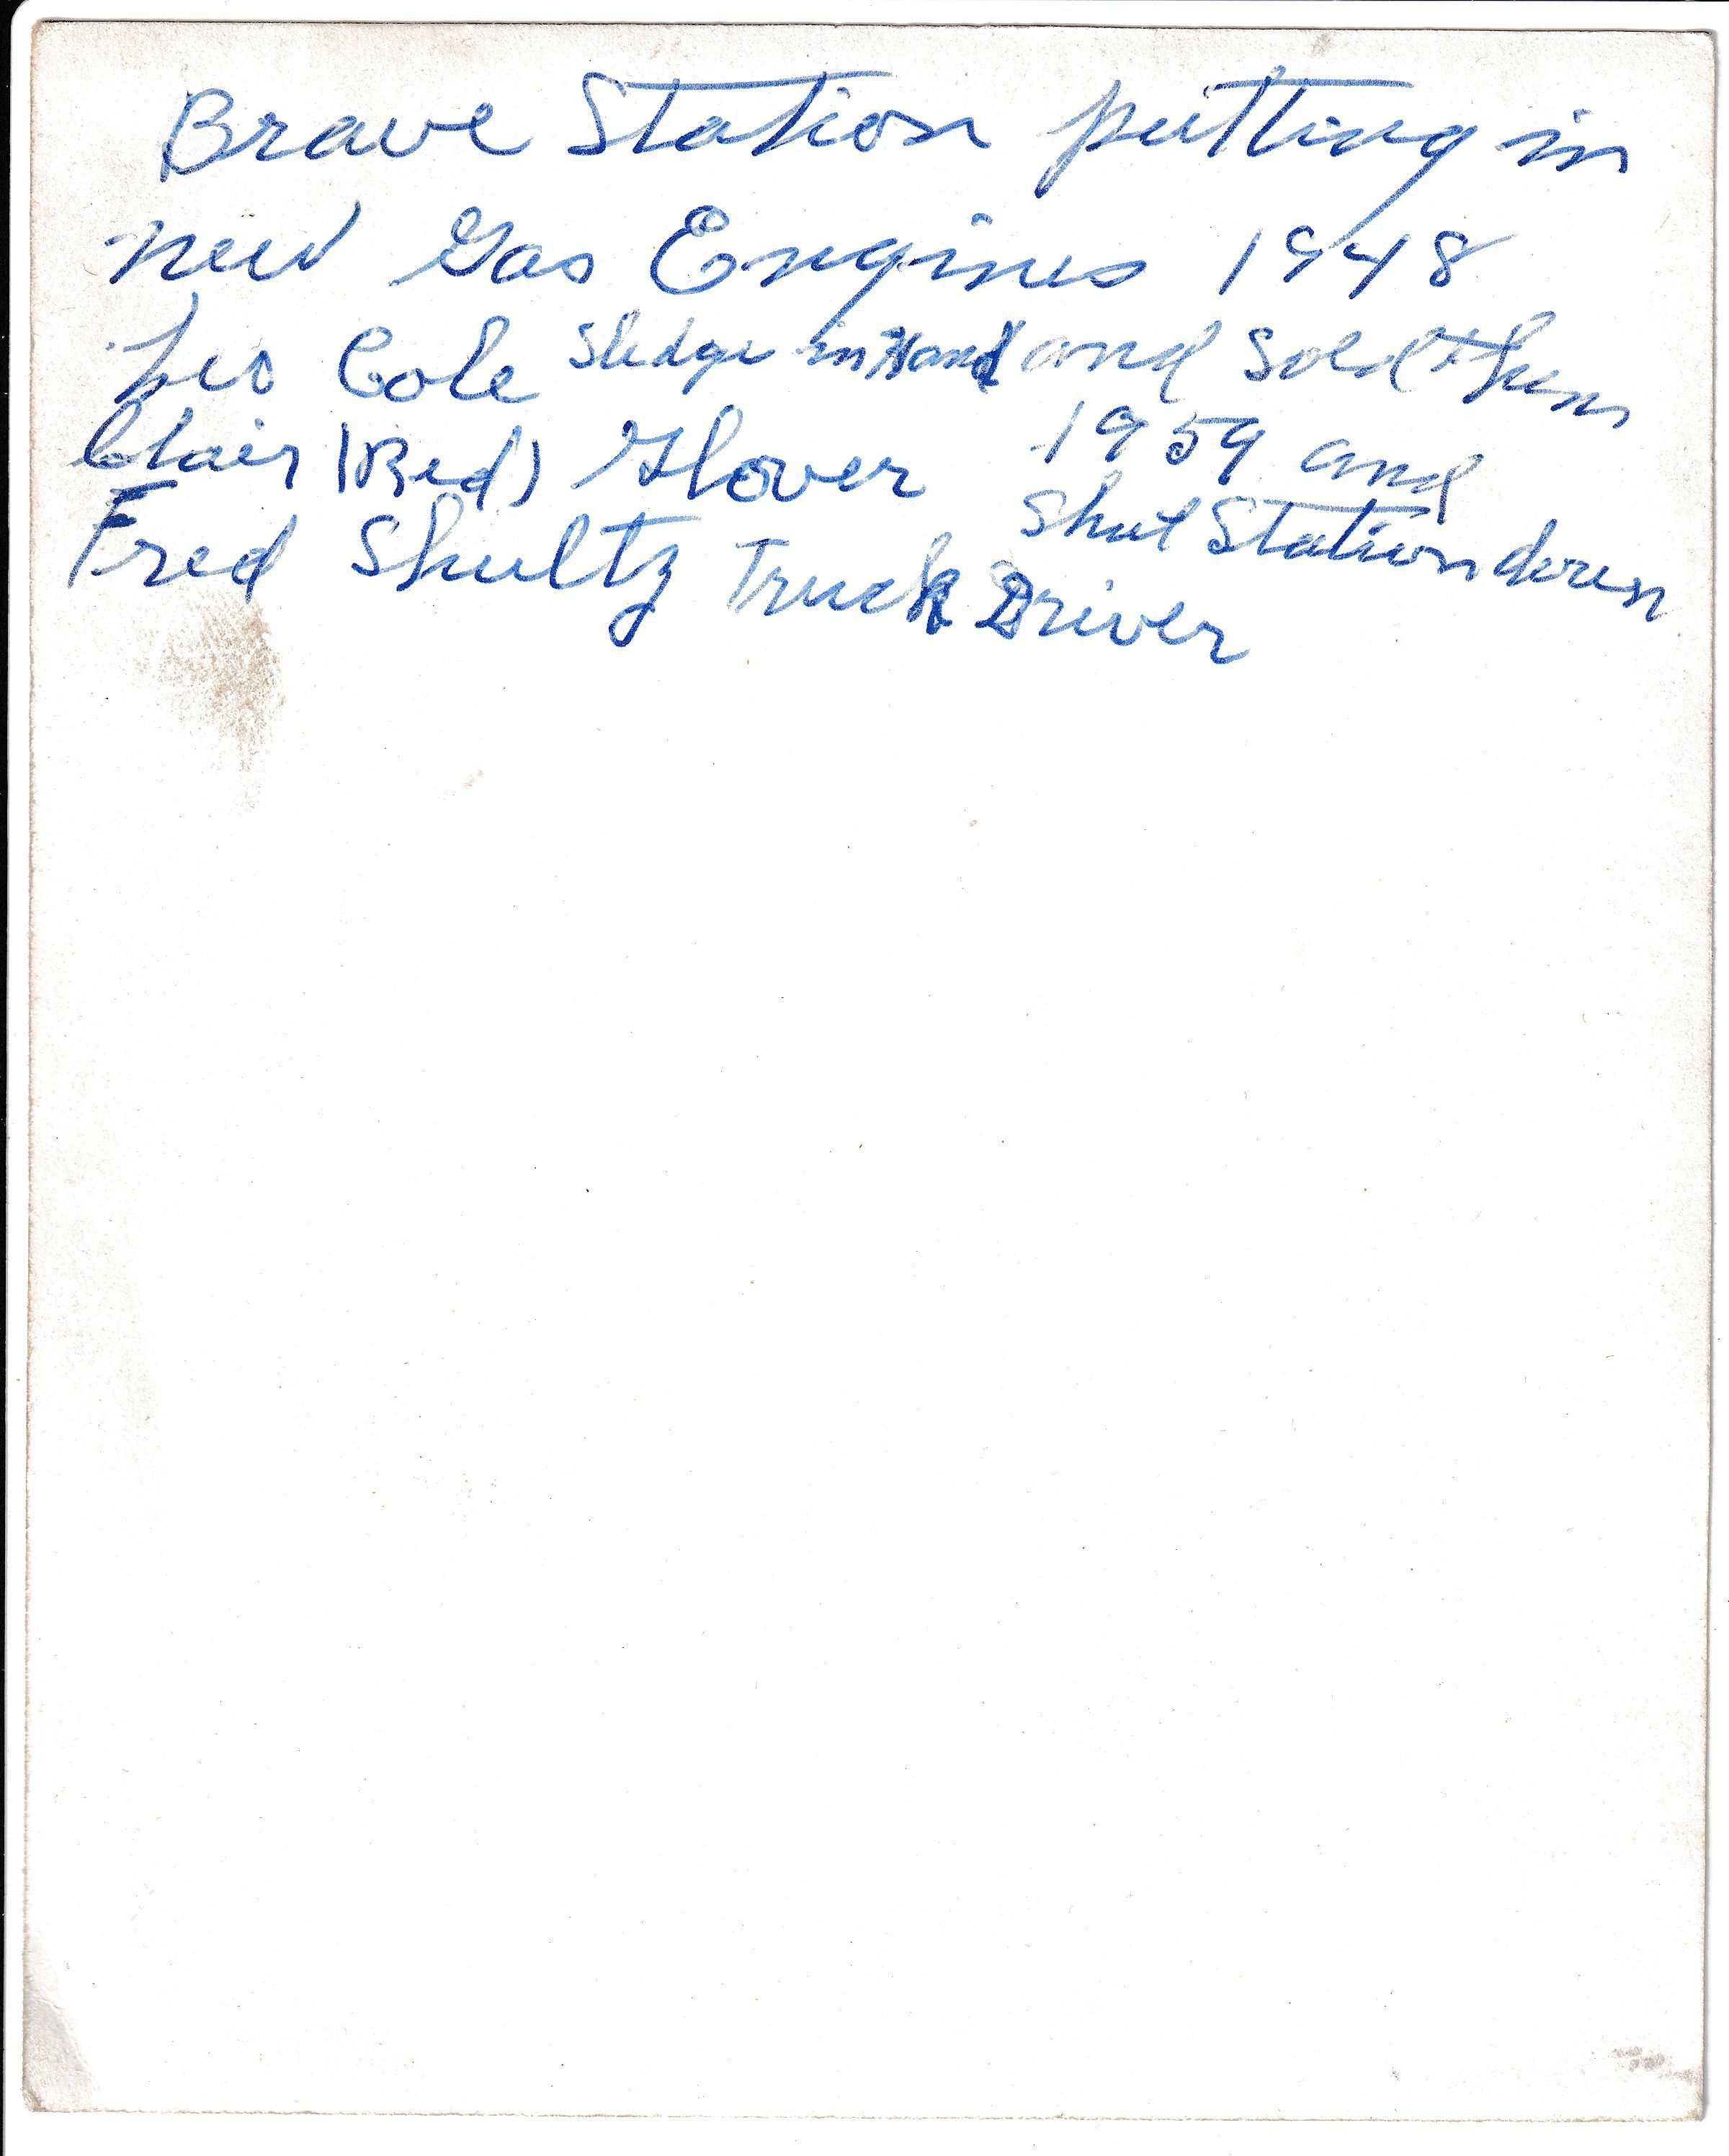 Brave Station putting in
new Gas Engines 1948
Les Cole Sledge in Hand and Sold them
Clair (Red) Glover 1959 and
Shut Station down
Fred Shultz Truck Driver